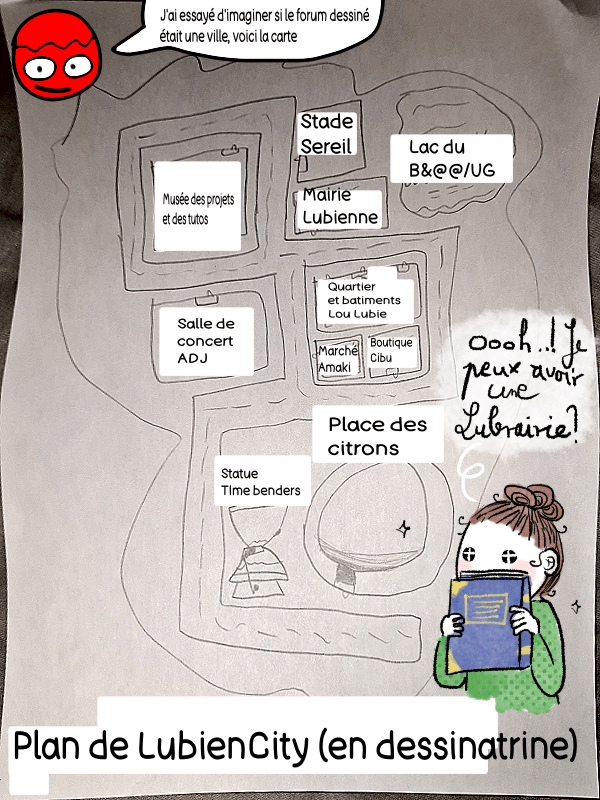 J'ai essayé d'imaginer si le forum dessiné
était une ville, voici la carte
Stade
Sereil
Lac du
B&@@/UG
Musée des projets
et des tutos
Mairie
Lubienne
Quartier
et batiments
Lou Lubie
Salle de
concert
ADJ
Marché
Amaki
Boutique
Cibu
Oooh..! Je
peux avoir
une
Lubrairie?
Place des
citrons
Statue
TIme benders
Plan de LubienCity (en dessinatrine)